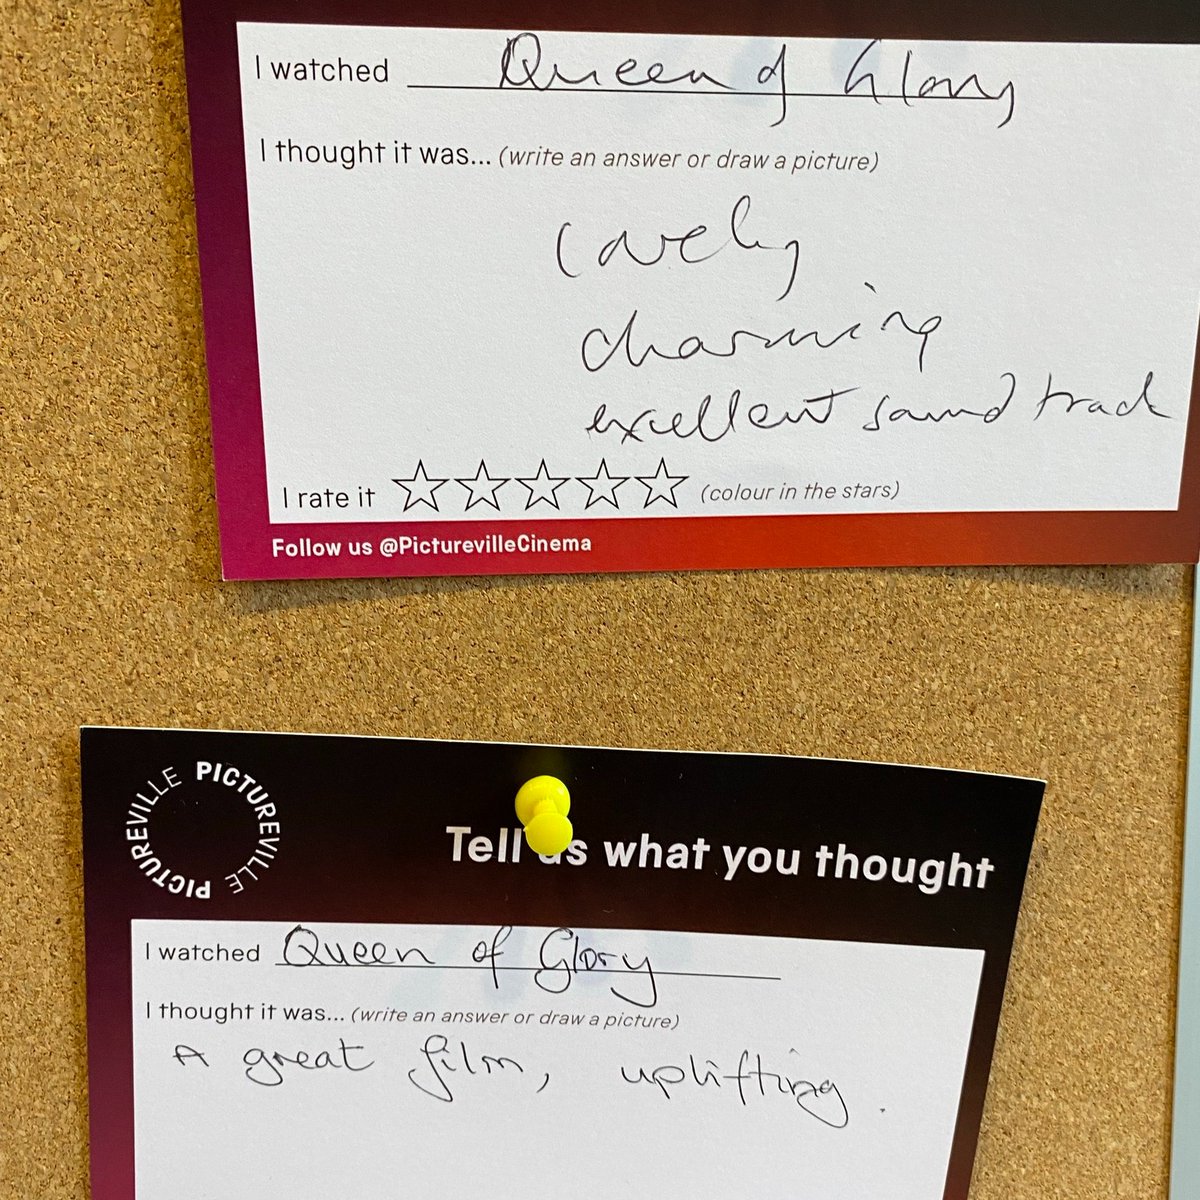 I watched Queen of Glory
I thought it was... (write an answer or draw a picture)
lovely
charming
excellent sound track
I rate it (colour in the stars)
Follow us @PicturevilleCinema
PICTUREVILLE PICTUREVILLE
Tell us what you thought
I watched Queen of Glory
I thought it was... (write an answer or draw a picture)
A great film, uplifting.